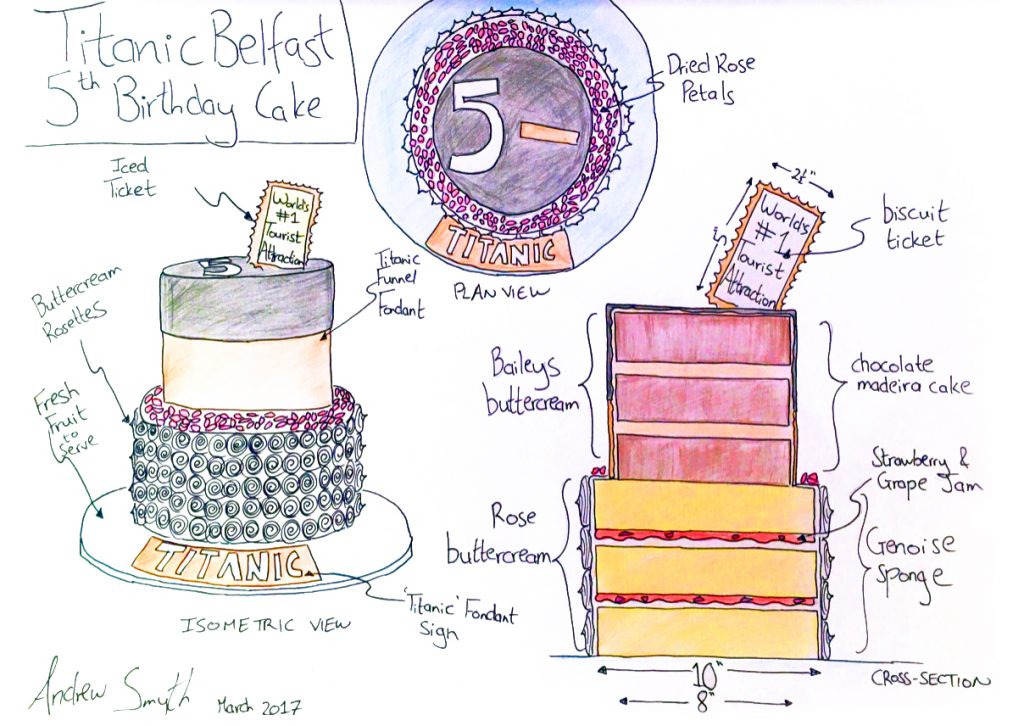 Titanic Belfast
5th Birthday Cake
5
Dried Rose
Petals
TITANIC
PLAN VIEW
Iced
Ticket
World's
#1
Tourist
Attraction
5
Buttercream
Rosettes
Titanic
Funnel
Fondant
Fresh
Fruit
to
Serve
TITANIC
'Titanic' Fondant
Sign
ISOMETRIC VIEW
Andrew Smyth
March 2017
2½"
5"
Worlds
#1
Tourist
Attraction
biscuit
ticket
Baileys
buttercream
chocolate
madeira cake
Strawberry &
Grape Jam
Rose
buttercream
Genoise
Sponge
10"
8"
CROSS-SECTION